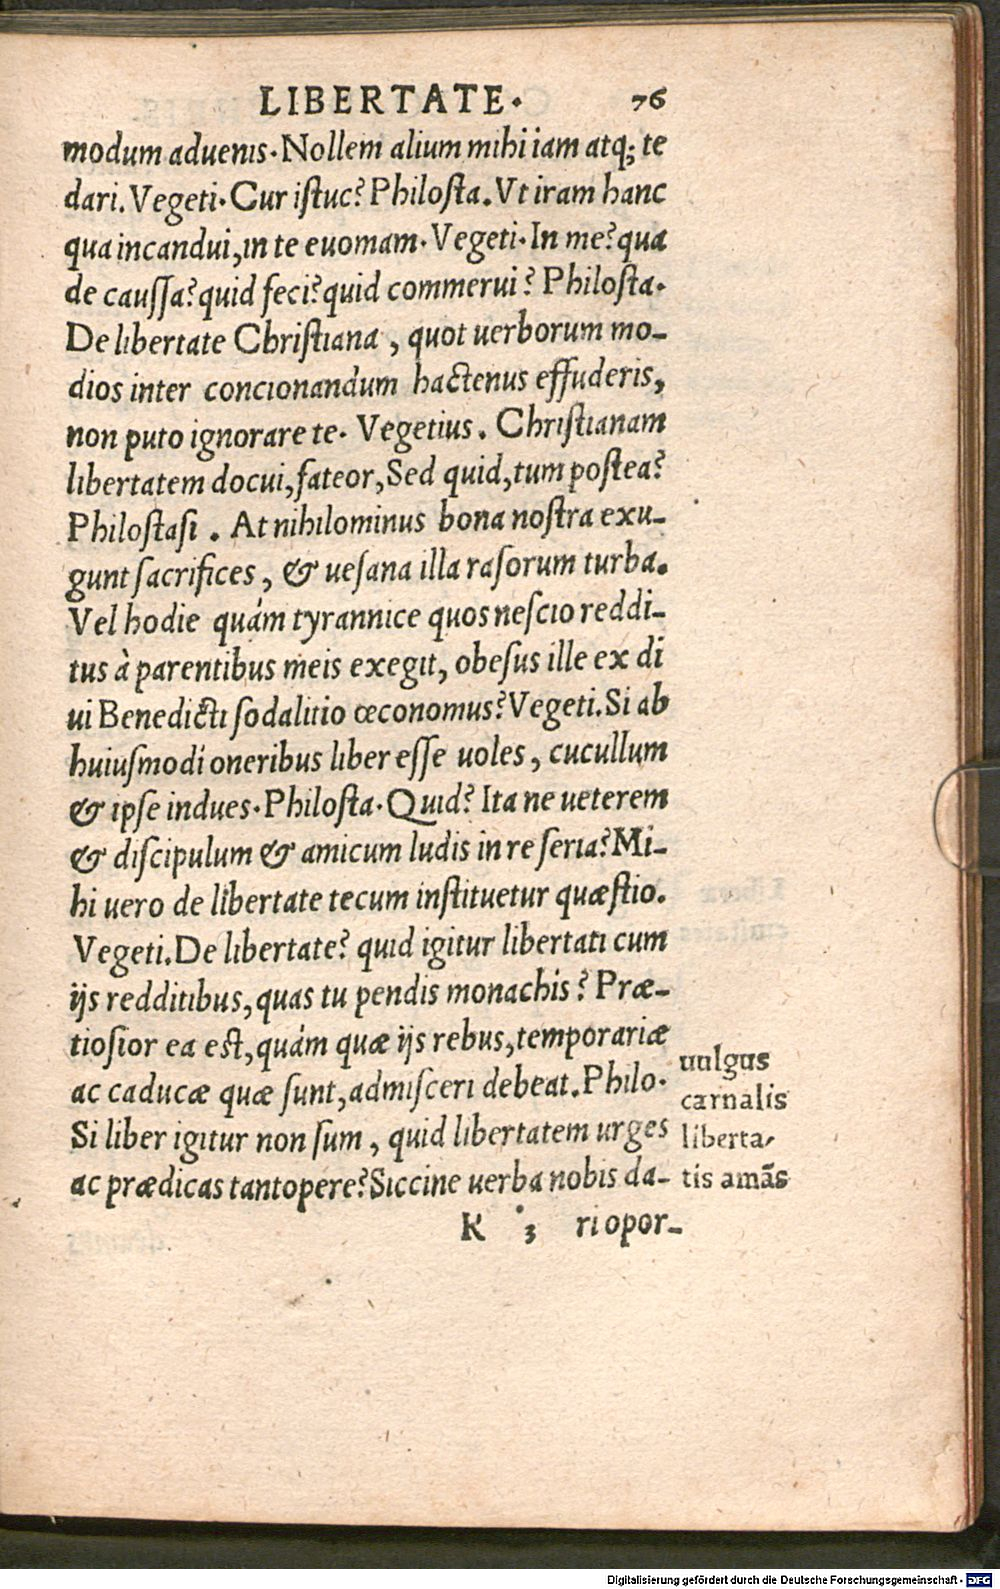 LIBERTATE. 76
modum aduenis. Nollem alium mihi iam atq; te
dari. Vegeti. Cur iſtuc? Philoſta. Vt iram hanc
qua incandui, in te euomam. Vegeti. In me? qua
de cauſſa? quid feci? quid commerui? Philoſta.
De libertate Chriſtiana, quot uerborum mo-
dios inter concionandum hactenus effuderis,
non puto ignorare te. Vegetius. Chriſtianam
libertatem docui, fateor, Sed quid, tum poſtea?
Philoſtaſi. At nihilominus bona noſtra exu-
gunt ſacrifices, & ueſana illa raſorum turba.
Vel hodie quám tyrannice quos neſcio reddi-
tus à parentibus meis exegit, obeſus ille ex di
ui Benedicti ſodalitio œconomus? Vegeti. Si ab
huiuſmodi oneribus liber eſſe uoles, cucullum
& ipſe indues. Philoſta. Quid? Ita ne ueterem
& diſcipulum & amicum ludis in re ſeria? Mi-
hi uero de libertate tecum inſtituetur quæſtio.
Vegeti. De libertate? quid igitur libertati cum
ijs redditibus, quas tu pendis monachis? Præ-
tioſior ea eſt, quám quæ ijs rebus, temporariæ
ac caducæ quæ ſunt, admiſceri debeat. Philo.
Si liber igitur non ſum, quid libertatem urges
ac prædicas tantopere? Siccine uerba nobis da-
uulgus
carnalis
liberta-
tis amãs
K 3 ri opor-
Digitalisierung gefördert durch die Deutsche Forschungsgemeinschaft - DFG